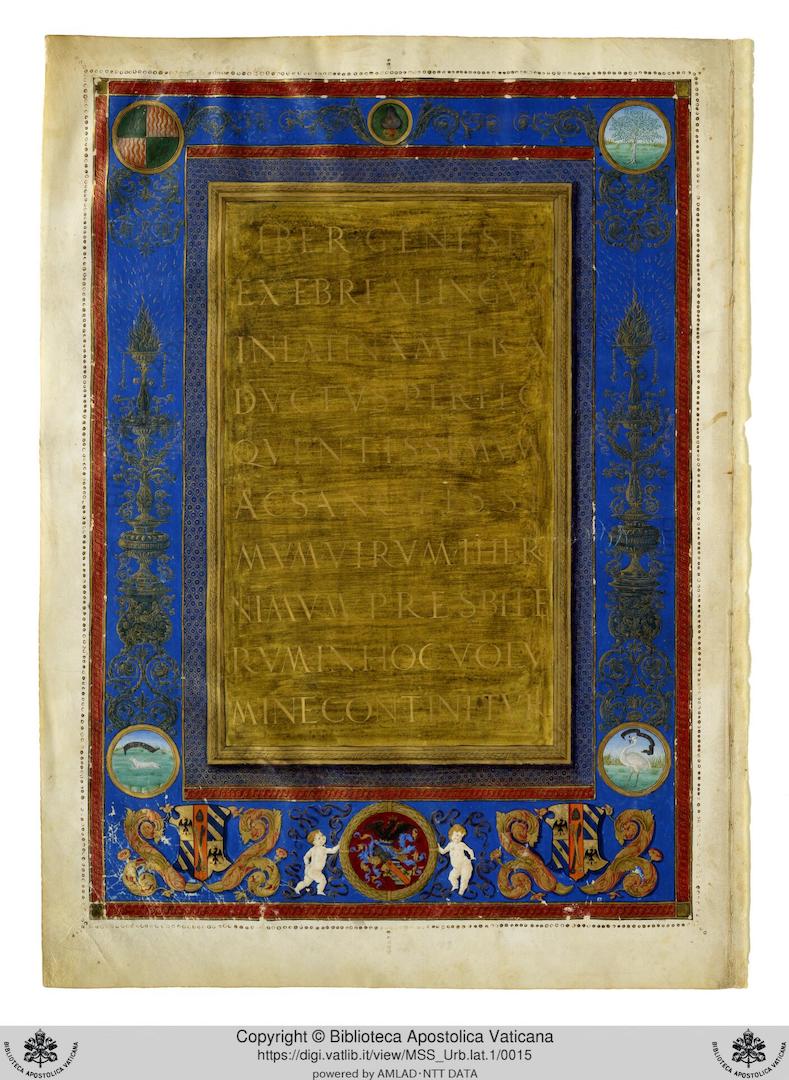 LIBER GENESIS
EX EBREA LINGVA
IN LATINAM TRA
DVCTVS PER ELO
QVENTISSIMVM
AC SANCTISSI
MVM VIRVM IHERO
NIMVM PRESBITE
RVM IN HOC VOLV
MINE CONTINETVR
Copyright © Biblioteca Apostolica Vaticana
https://digi.vatlib.it/view/MSS_Urb.lat.1/0015
powered by AMLAD·NTT DATA
BIBLIOTECA APOSTOLICA VATICANA
BIBLIOTECA APOSTOLICA VATICANA